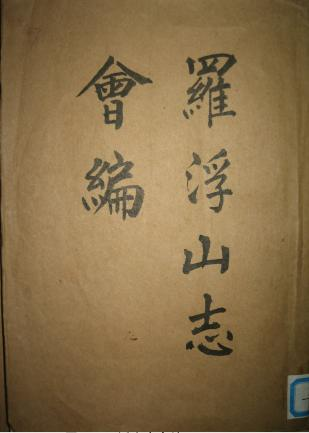 羅浮山志
會編